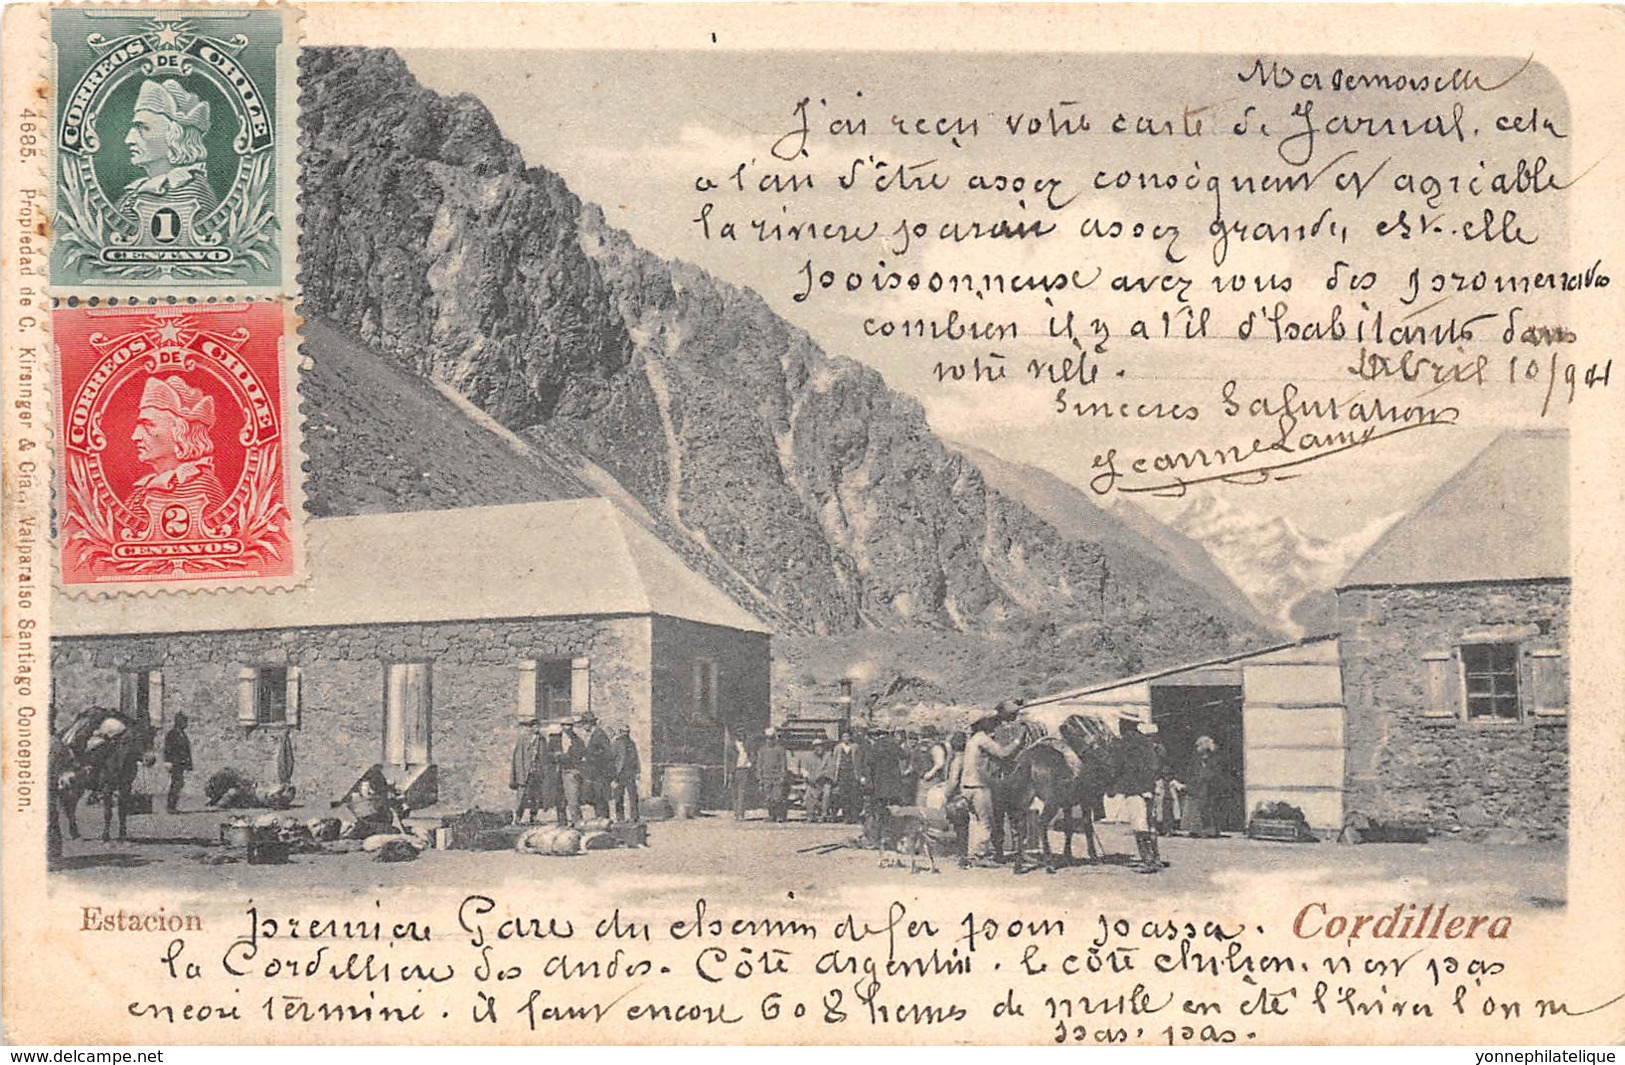 CORREOS DE CHILE
1
CENTAVO
CORREOS DE CHILE
2
CENTAVOS
4685. Propiedad de C. Kirsinger & Cia., Valparaiso Santiago Concepcion.
Mademoiselle
J'ai reçu votre carte de Jarnal. cela
a l'air d'être assez conséquent et agréable
la rivière parait assez grande, est-elle
poissonneuse avez vous des promenades
combien il y a t'il d'habitants dans
votre ville.
Abril 10/904
Sinceres Salutations
Jeanne Lamy
Estacion
Cordillera
première Gare du chemin de fer pour passer
la Cordilliere des Andes. Côté Argentin. le côté chilien. n'est pas
encore terminé. il faut encore 6 o 8 heures de mule en été l'hiver l'on ne
pas. pas.
delcampe.net
yonnephilatelique